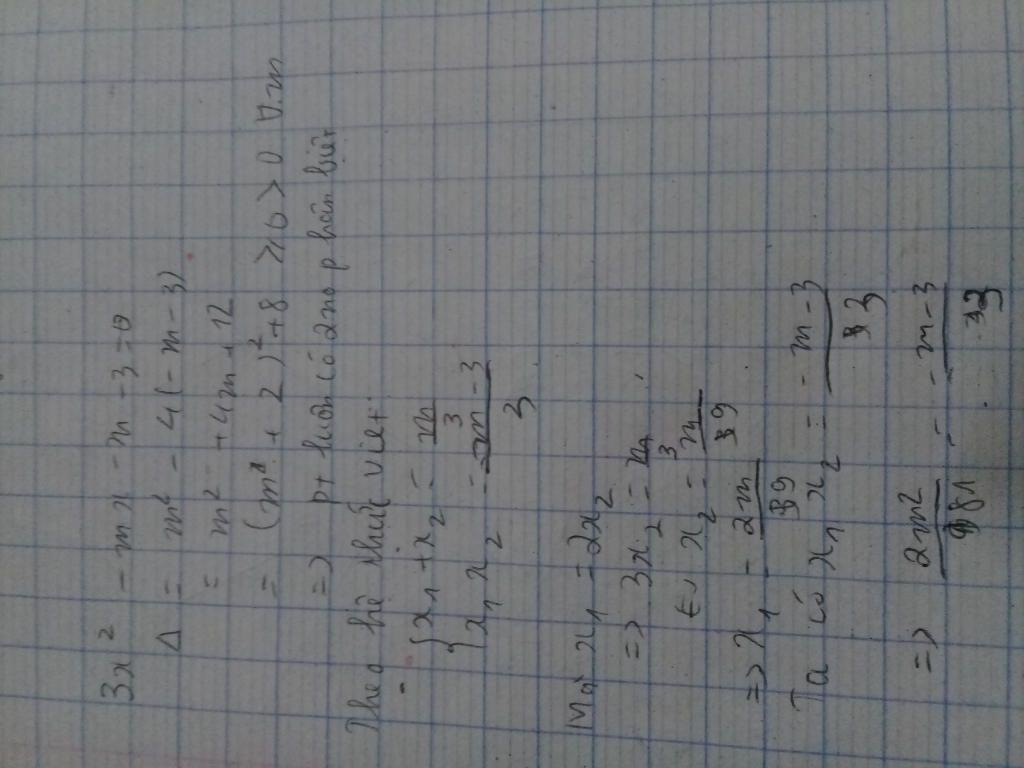 3x² - mx - m - 3 = 0
Δ = m² - 4(-m - 3)
= m² + 4m + 12
= (m + 2)² + 8 ≥ 8 > 0 ∀m
=> pt luôn có 2 no phân biệt
Theo hệ thức viet:
{ x₁ + x₂ = m/3
x₁x₂ = -m-3/3
Mà x₁ = 2x₂
=> 3x₂ = m/3
x₂ = m/9
=> x₁ = 2m/9
Ta có x₁x₂ = -m-3/3
=> 2m²/81 = -m-3/3